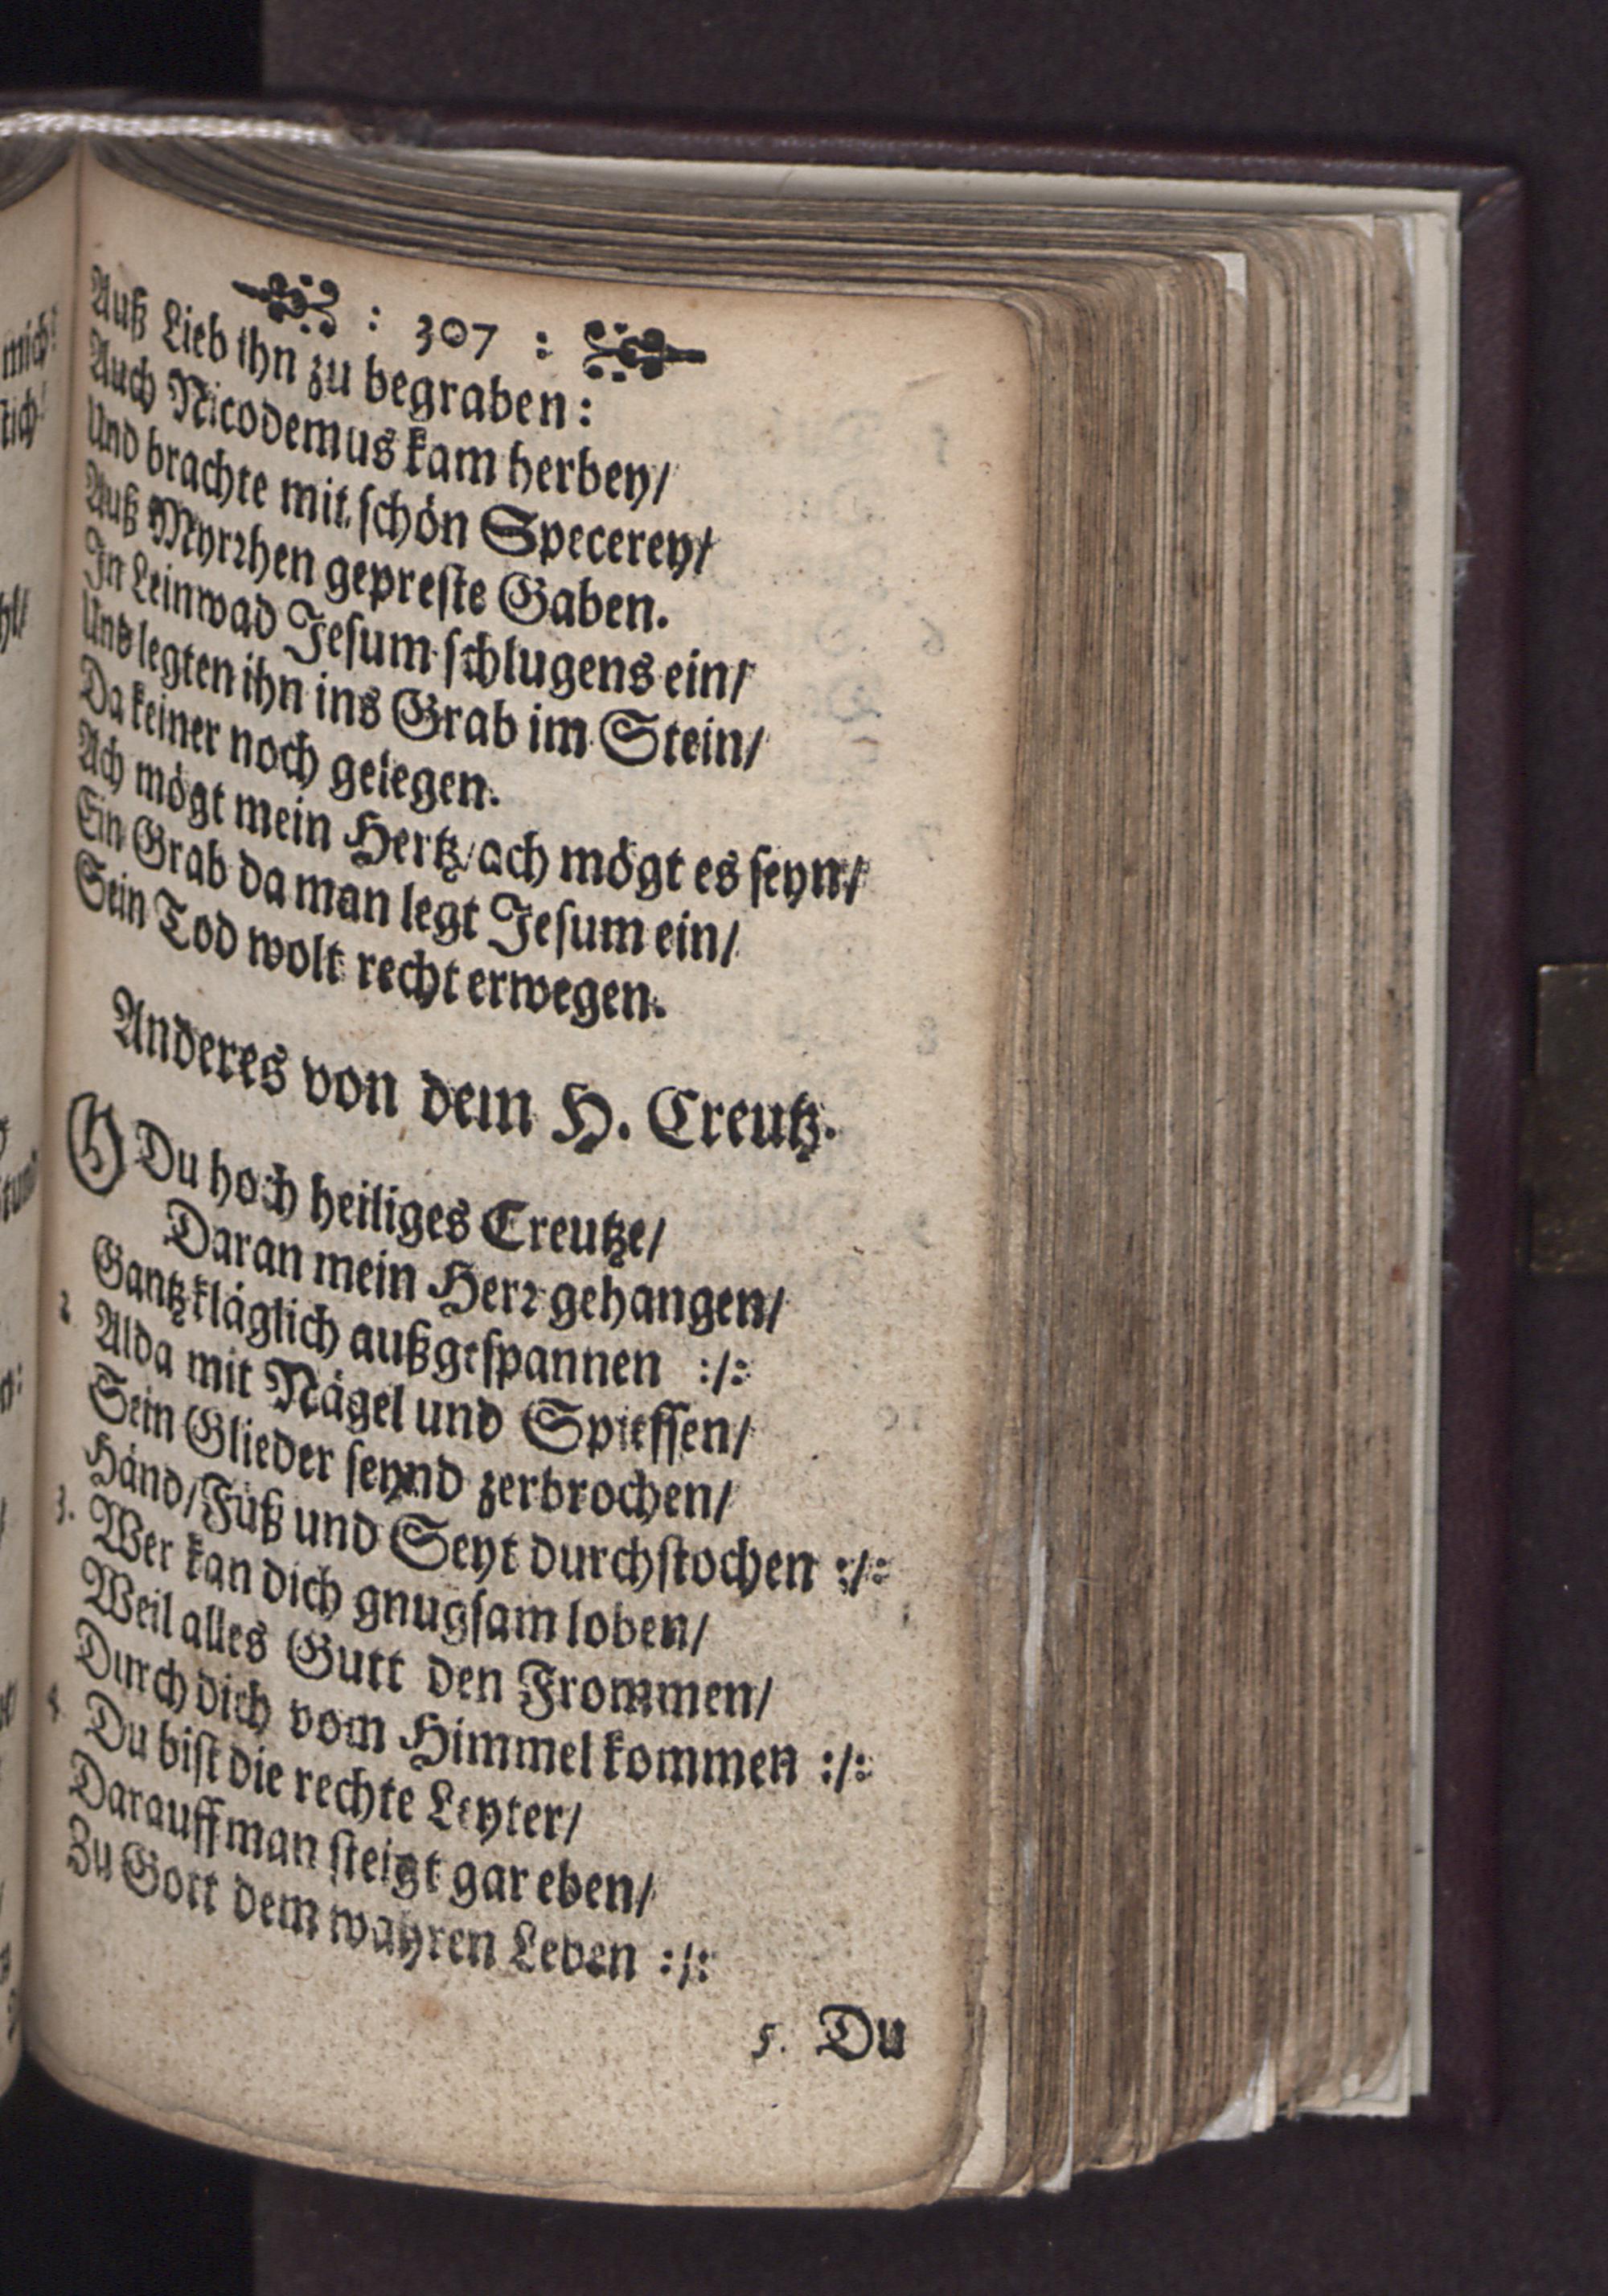 : 307 :
Auß Lieb ihn zu begraben:
Auch Nicodemus kam herbey/
Und brachte mit schön Specerey/
Auß Myrrhen gepreste Gaben.
In Leinwad Jesum schlugens ein/
Und legten ihn ins Grab im Stein/
Da keiner noch gelegen.
Ach mögt mein Hertz/ach mögt es seyn/
Ein Grab da man legt Jesum ein/
Sein Tod wolt recht erwegen.
Anderes von dem H. Creutz.
O Du hoch heiliges Creutze/
Daran mein Herr gehangen/
Gantz kläglich außgespannen :/:
2 Alda mit Nägel und Spiessen/
Sein Glieder seynd zerbrochen/
Händ/Füß und Seyt durchstochen :/:
3. Wer kan dich gnugsam loben/
Weil alles Gutt den Frommen/
Durch dich vom Himmel kommen :/:
Du bist die rechte Leyter/
Darauff man steigt gar eben/
Zu Gott dem wahren Leben :/:
5. Du